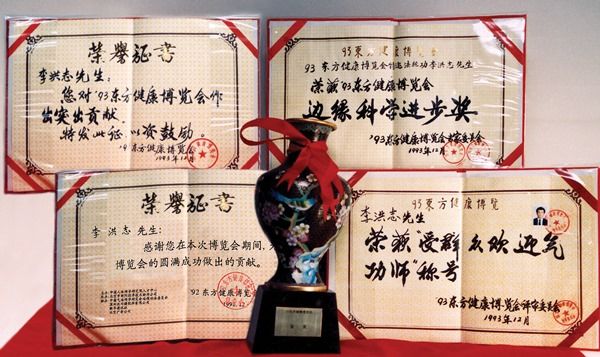 荣誉证书
李洪志先生:
您对'93东方健康博览会作
出突出贡献,
特发此证,以资鼓励。
'93东方健康博览会
1993年12月
'93東方健康博览会
荣获'93东方健康博览会
边缘科学进步奖
'93东方健康博览会评审委员会
1993年12月
荣誉证书
李洪志先生:
感谢您在本次博览会期间,
博览会的圆满成功做出的贡献。
'92东方健康博览会
1992.12
'93東方健康博览
李洪志先生
荣获"受群众欢迎气
功师"称号
'93东方健康博览会评审委员会
1993年12月